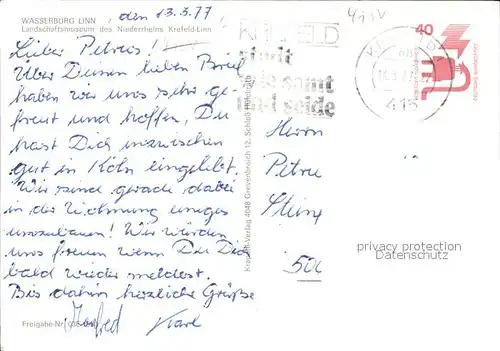 WASSERBURG LINN
Landschaftsmuseum des Niederrheins Krefeld-Linn
den 13.3.77
Lieber Petrus!
Über Deinen lieben Brief
haben wir uns sehr ge-
freut und hoffen, Du
hast Dich inzwischen
gut in Köln eingelebt.
Wir sind gerade dabei
in der Wohnung einiges
umzubauen! Wir würden
uns freuen wenn Du Dich
bald wieder meldest.
Bis dahin herzliche Grüße
Karl
Freigabe-Nr.
4048 Grevenbroich 12, Schloß Hülchrath
KREFELD
stadt
wie samt
und seide
415
40
Herrn
Petru
500
privacy protection
Datenschutz